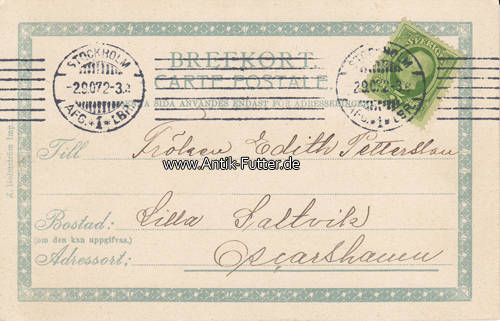 STOCKHOLM
-2.9.07.2-3.
AFG. * 1 * LBR.
BREFKORT
CARTE POSTALE
SIDA ANVÄNDES ENDAST FÖR ADRESSEN
SVERIGE
STOCKHOLM
2.9.07.2-3.
AFG. * 1 * LBR.
Till Fröken Edith Petterslan
www.Antik-Futter.de
Bostad: Lilla Saltvik
(om den kan uppgifvas.)
Adressort: Oscarshamn
Imp.